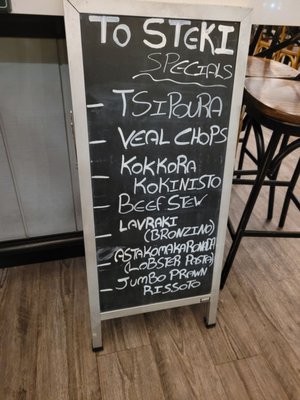 To STEKI
SPECIALS
- TSIPOURA
- VEAL CHOPS
- KOKKORA
KOKINISTO
- BEEF STEW
- LAVRAKI
(BRONZINO)
- ASTAKOMAKARONADA
(LOBSTER PASTA)
- JUMBO PRAWN
RISSOTO